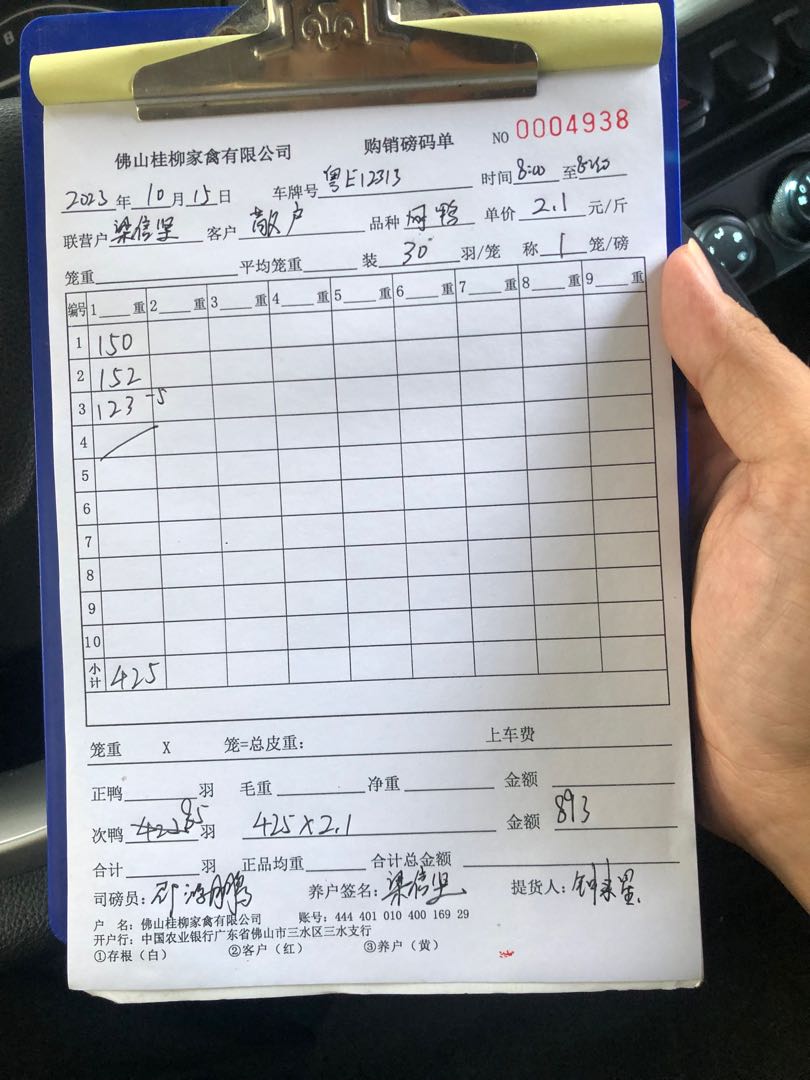 佛山桂柳家禽有限公司 购销磅码单 NO 0004938
2023年10月15日 车牌号粤E12313 时间8:00至
联营户梁信坚 客户散户 品种 鸭 单价2.1元/斤
笼重 平均笼重 装30羽/笼 称1笼/磅
编号 1 重 2 重 3 重 4 重 5 重 6 重 7 重 8 重 9 重
1 150
2 152
3 123 -5
4
5
6
7
8
9
10
小计 425
笼重 X 笼=总皮重: 上车费
正鸭 羽 毛重 净重 金额
次鸭 85 羽 425×2.1 金额 893
合计 羽 正品均重 合计总金额
司磅员: 养户签名:梁信坚 提货人:
户 名:佛山桂柳家禽有限公司 账号:444 401 010 400 169 29
开户行:中国农业银行广东省佛山市三水区三水支行
①存根(白) ②客户(红) ③养户(黄)